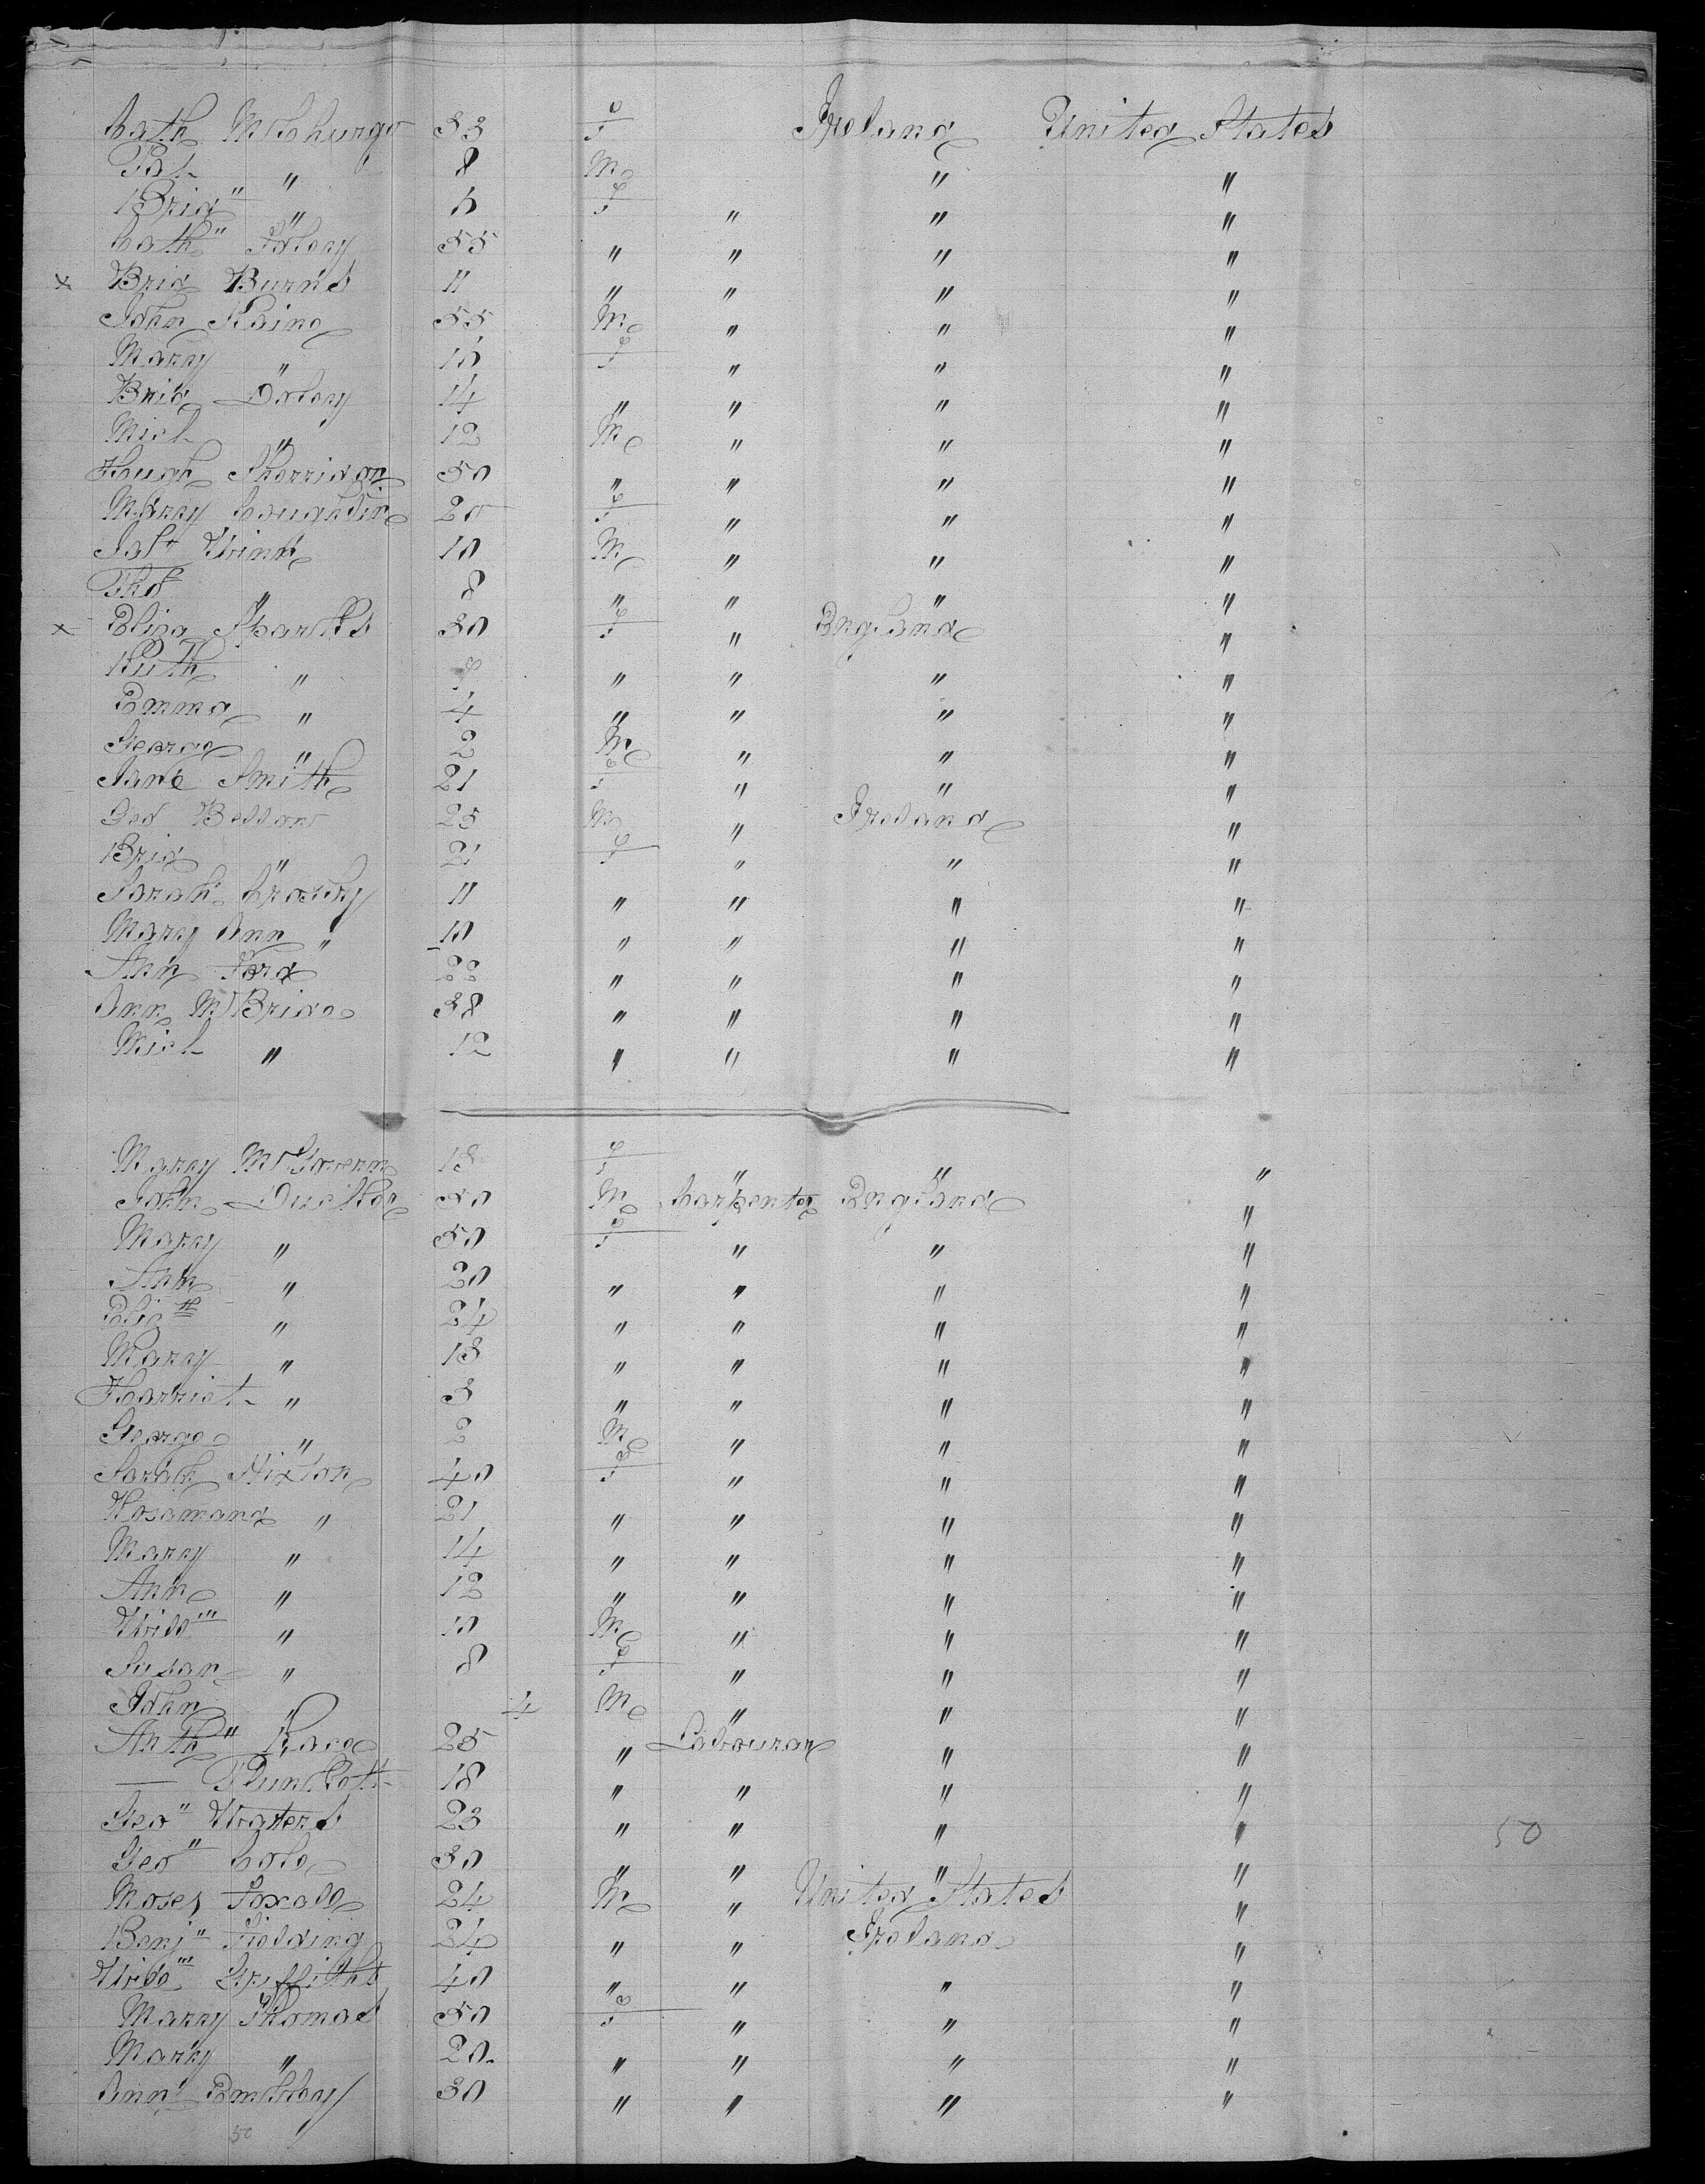 Cath McChurgo 33 F Ireland United States
Pat " 8 M " "
Brid " 6 F " " "
Cath" Foley 55 " " " "
x Brid Burns 11 " " " "
John 55 M " " "
Mary " 16 F " " "
Brid Doley 14 " " " "
Mich " 12 M " " "
Hough Sherridan 50 " " " "
Mary Coughlin 20 F " " "
10 M " " "
Thos " 8 " " " "
x Eliza Sparks 30 F " England "
Ruth " " " " "
Emma " 4 " " " "
George " 2 M " " "
Jane Smith 21 F " " "
Geo 25 M " Ireland "
Brid " 21 F " " "
Sarah Crosby 11 " " " "
Mary Ann " 10 " " " "
Ann Ford 22 " " " "
Ann McBride 38 " " " "
Mich " 12 " " " "
Mary McGovern 18 F " " "
John M Carpenter England "
Mary " 50 F " " "
Ann " 20 " " " "
Eliz th " 24 " " " "
Mary " 13 " " " "
Harriet " 3 " " " "
George " 2 M " " "
Sarah Hixton 40 F " " "
Rosamand " 21 " " " "
Mary " 14 " " " "
Ann " 12 " " " "
Will m " 10 M " " "
Susan " 8 F " " "
John " 4 M " " "
Anth" Race 25 " Labourer " "
— Plunkett 18 " " " "
Geo" Waters 23 " " " " 50
Geo" Cole 30 " " " "
Moses Foxall 24 M " United States "
Benj" Fielding 24 " " Ireland "
Will m Griffiths 40 " " " "
Mary Thomas 50 F " " "
Mary " 20 " " " "
Ann 30 " " " "
50